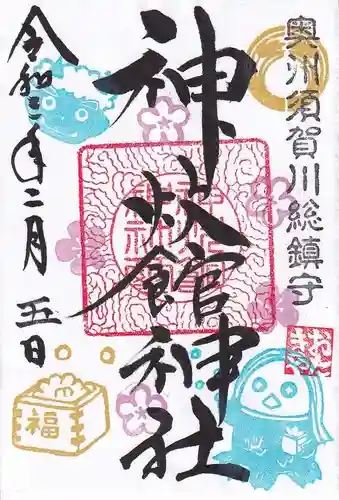 奥州須賀川総鎮守
神炊館神社
令和三年二月
五日
福